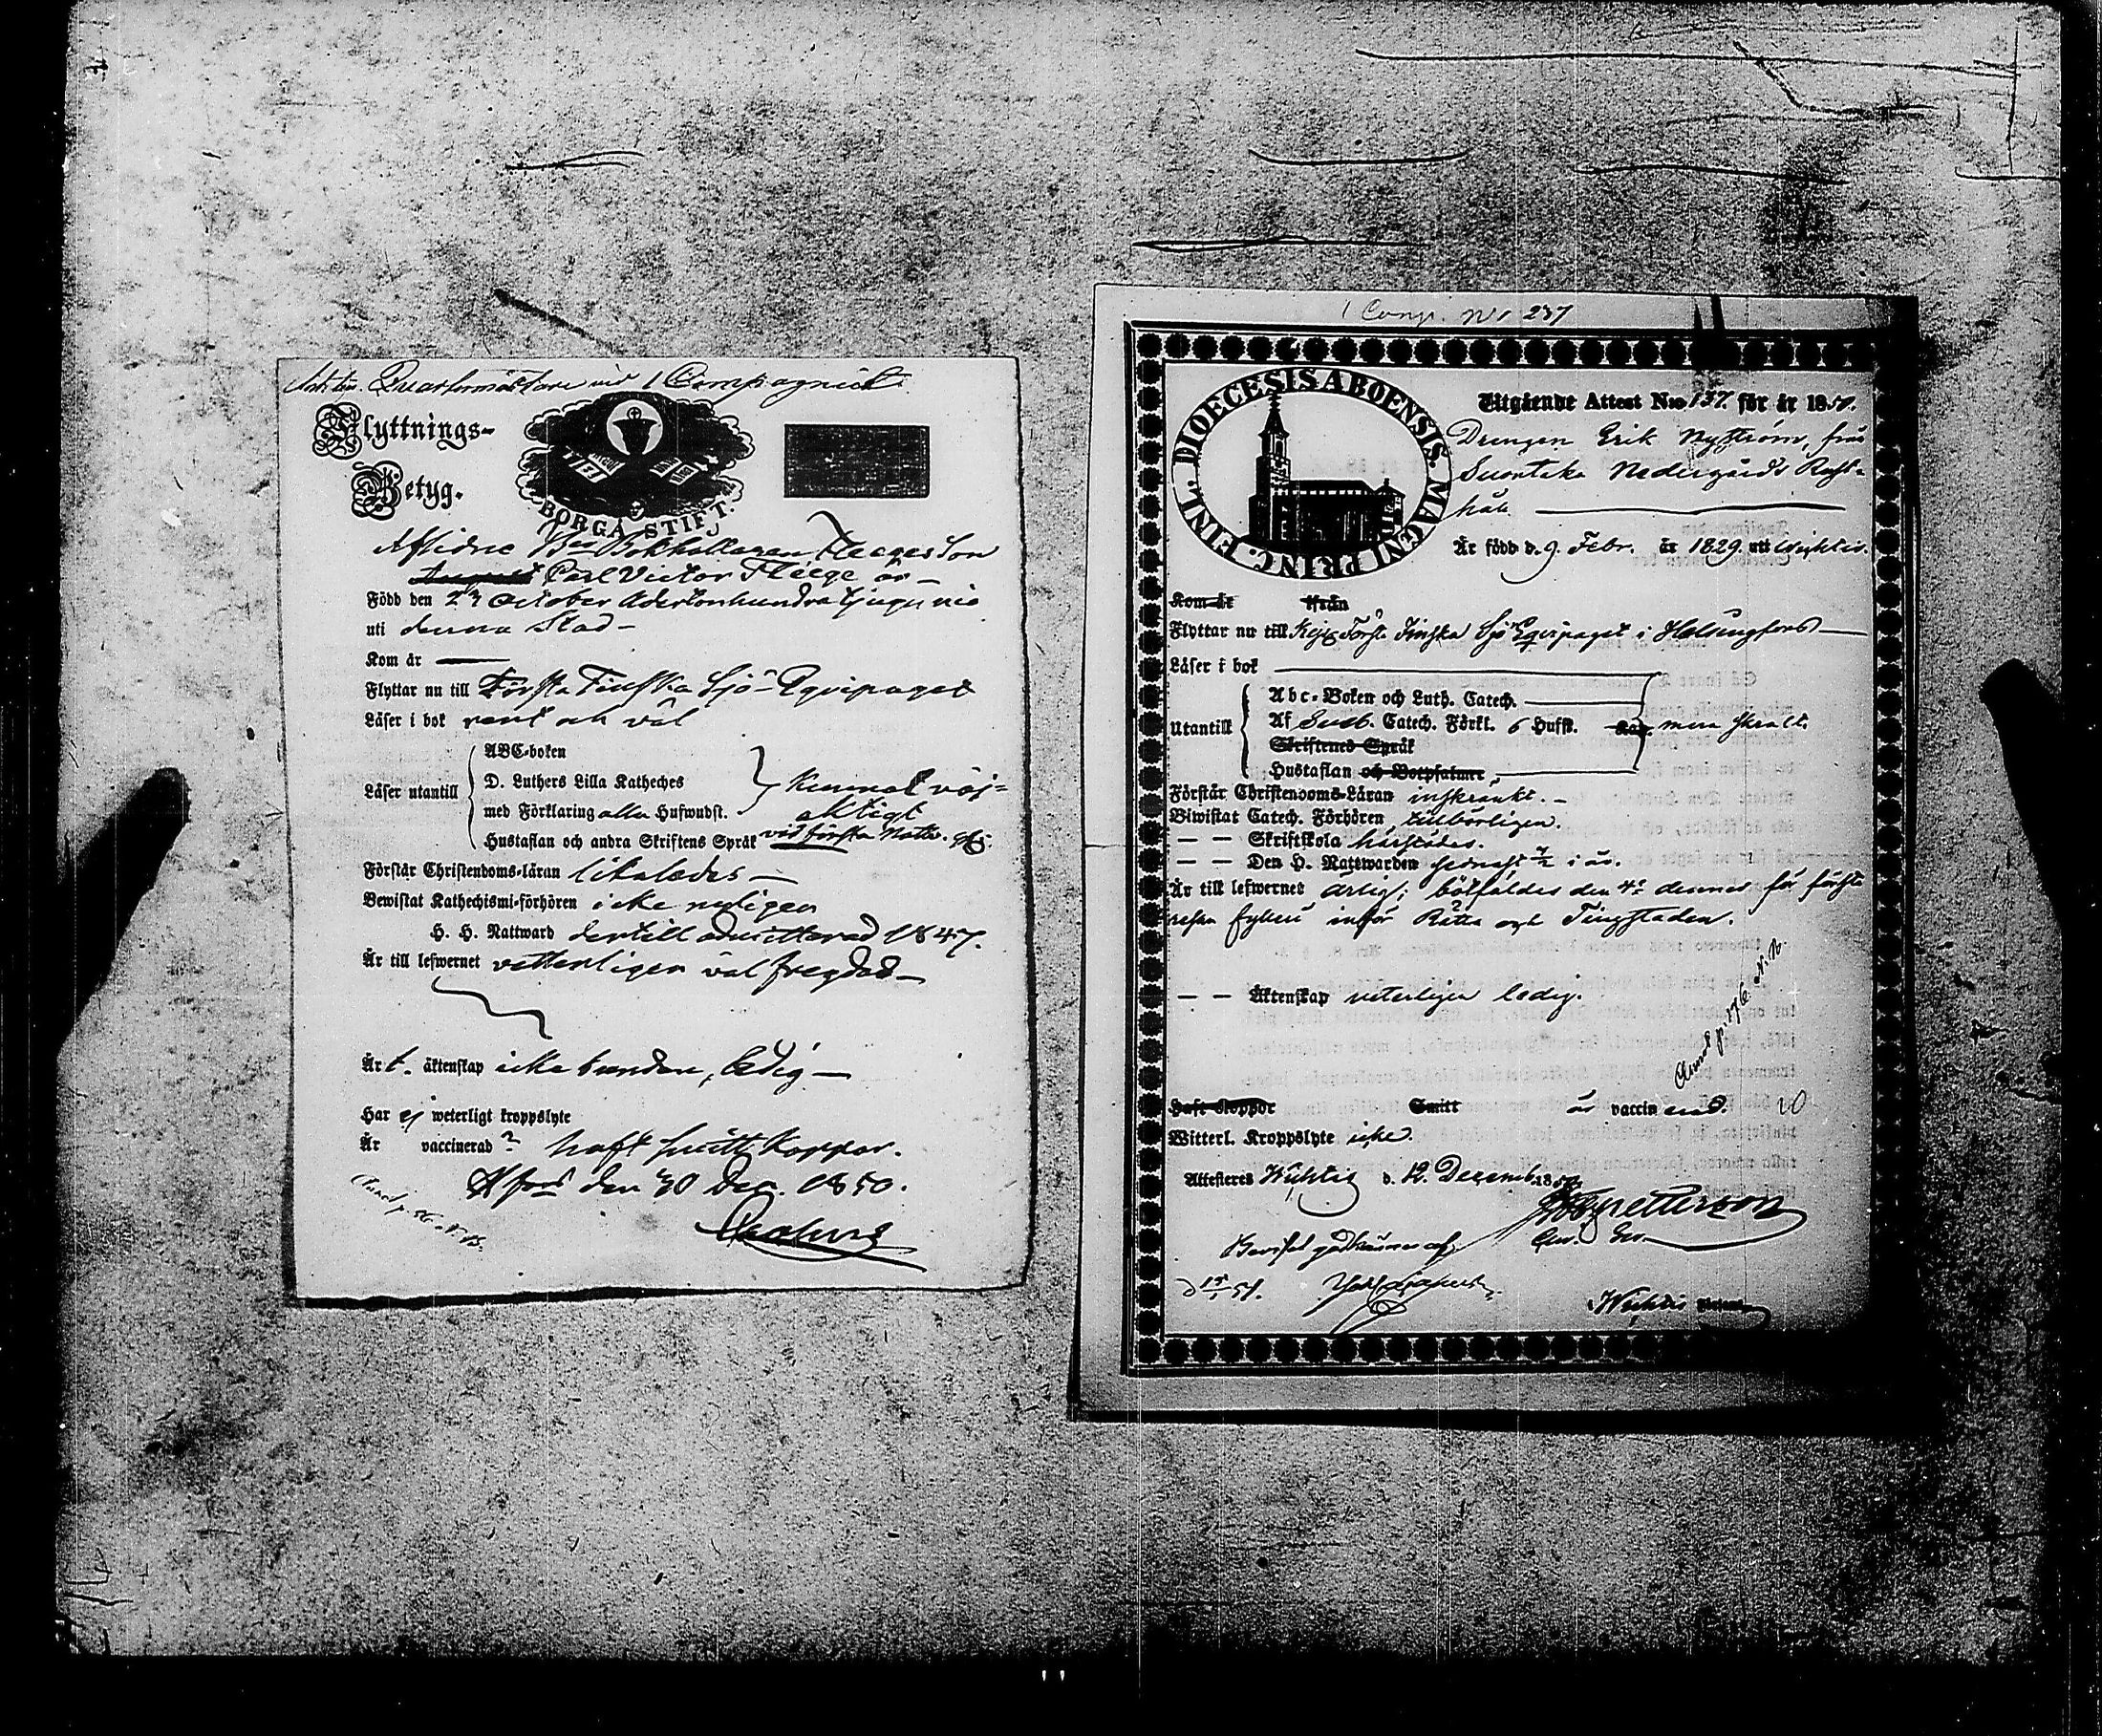 Quartermästare vid 1 Compagniet.
Flyttnings-
Betyg.
BORGÅ STIFT.
Aflidne Bokhållaren Fleeges Son
Carl Victor Fleege är –
Född den 27 October Adertonhundratjugunio
uti denna Stad –
Kom år
Flyttar nu till Första Finska Sjö-Eqvipaget
Läser i bok rent och väl
ABC-boken
D. Luthers Lilla Katheches
Läser utantill
med Förklaring alla Hufwudst.
Kunnat nöj-
aktigt
Hustaflan och andra Skriftens Språk vid första Nattv.
Förstår Christendoms-läran likaledes –
Bewistat Kathechismi-förhören icke nyligen
H. H. Nattward dertill admitterad 1847.
Är till lefwernet vetterligen välfregdad –
Är t. äktenskap icke bunden, ledig –
Har ej weterligt kroppslyte
Är vaccinerad? haft Smittkoppor.
H:fors den 30 Dec. 1850.
1 Comp. No 237
DIOECESIS ABOENSIS. MAGNI PRINC. FINL.
Utgående Attest N:o 137. för år 1850.
Drengen Erik Nyström, från
Suontaka Nedergårds Rust-
håll
Är född d. 9. Febr. år 1829. uti Wichtis.
Kom år ifrån
Flyttar nu till Kejs. Första Finska Sjö Eqvipaget i Helsingfors
Läser i bok
Abc-Boken och Luth. Catech.
Utantill
Af Sveb. Catech. Förkl. 6 Hufst. mera skralt.
Skriftenes Språk
Hustaflan och Botpsalmer
Förstår Christendoms-Läran inskränkt. –
Biwistat Catech. Förhören tillbörligen.
– – Skriftskola härstädes.
– – Den H. Nattwarden sednast i år.
Är till lefwernet ärlig; bötfäldes den 4 dennes för första
resan fylleri inför Rätta och Tingstaden.
– – Äktenskap veterligen ledig.
Haft Koppor Smitt är vaccinerad. 20
Witterl. Kroppslyte icke.
Attesteras Wichtis d. 12. Decemb. 1850
Beviset godkännes af
Wichtis